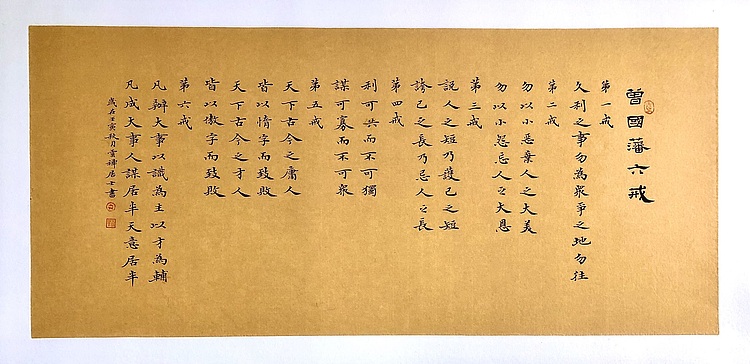 曾國藩六戒
第一戒
久利之事勿為衆爭之地勿往
第二戒
勿以小惡棄人之大美
勿以小怨忘人之大恩
第三戒
說人之短乃護己之短
誇己之長乃忌人之長
第四戒
利可共而不可獨
謀可寡而不可衆
第五戒
天下古今之庸人
皆以惰字而致敗
天下古今之才人
皆以傲字而致敗
第六戒
凡辦大事以識為主以才為輔
凡成大事人謀居半天意居半
歲在壬寅秋月雲禪居士書